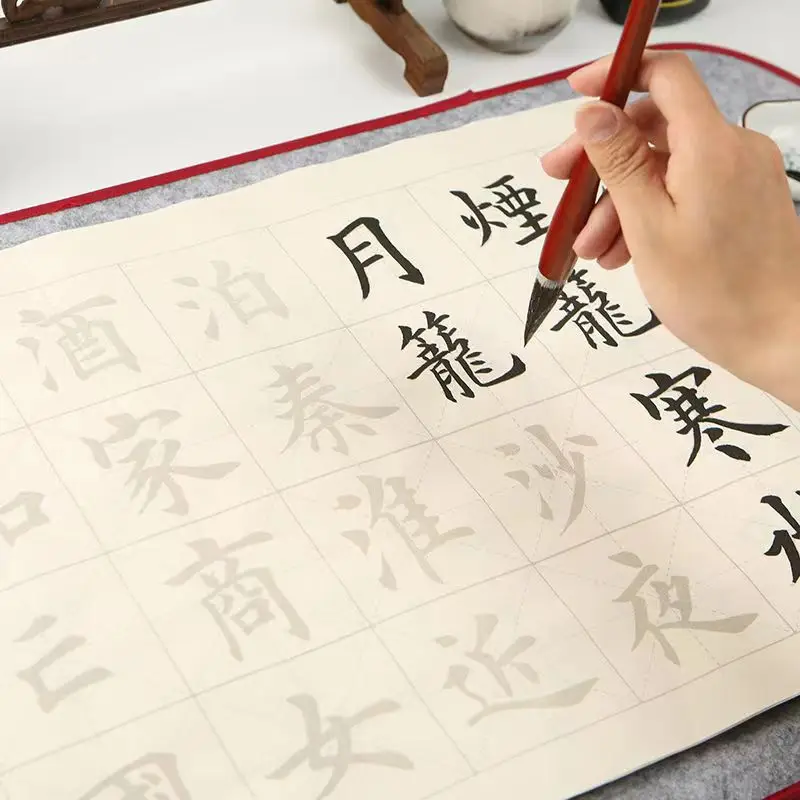 煙籠寒
月籠沙夜
泊秦淮近
酒家商女
亡國